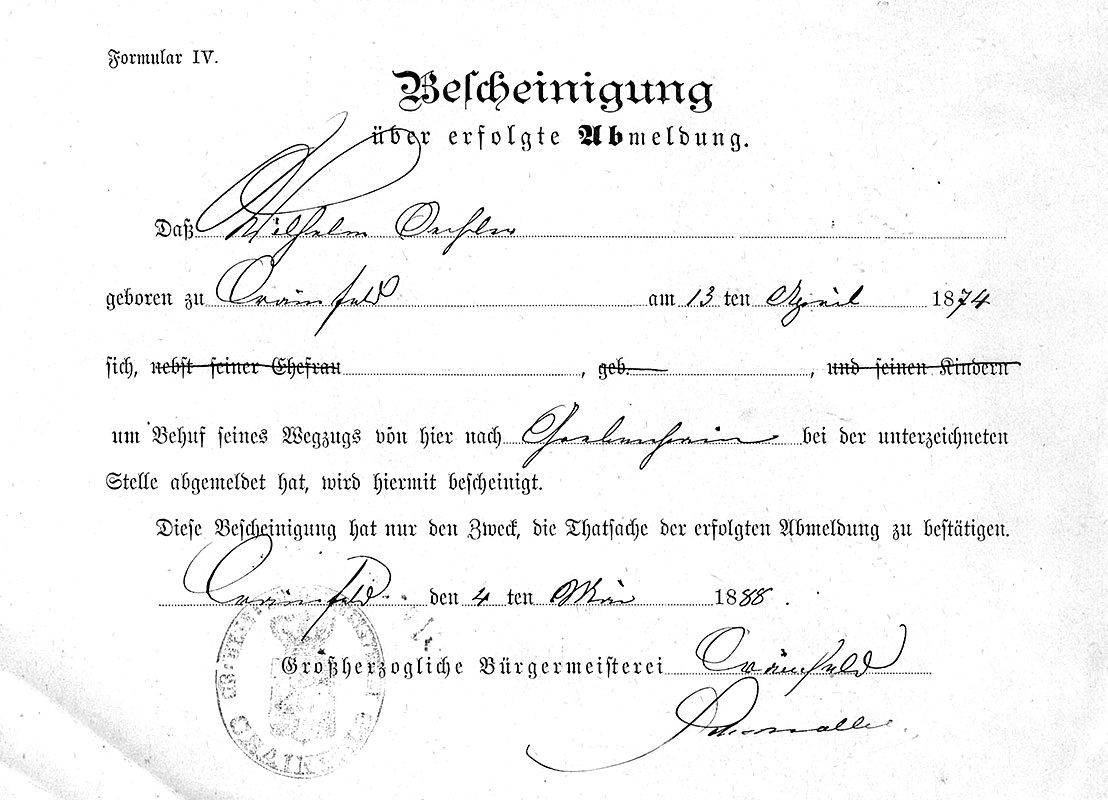 Formular IV.
Bescheinigung
über erfolgte Abmeldung.
Daß Wilhelm Oechler
geboren zu Crainfeld am 13 ten April 1874
sich, nebst seiner Ehefrau , geb. , und seinen Kindern
um Behuf seines Wegzugs von hier nach Grebenhain bei der unterzeichneten
Stelle abgemeldet hat, wird hiermit bescheinigt.
Diese Bescheinigung hat nur den Zweck, die Thatsache der erfolgten Abmeldung zu bestätigen.
Crainfeld den 4 ten Mai 1888.
Großherzogliche Bürgermeisterei Crainfeld